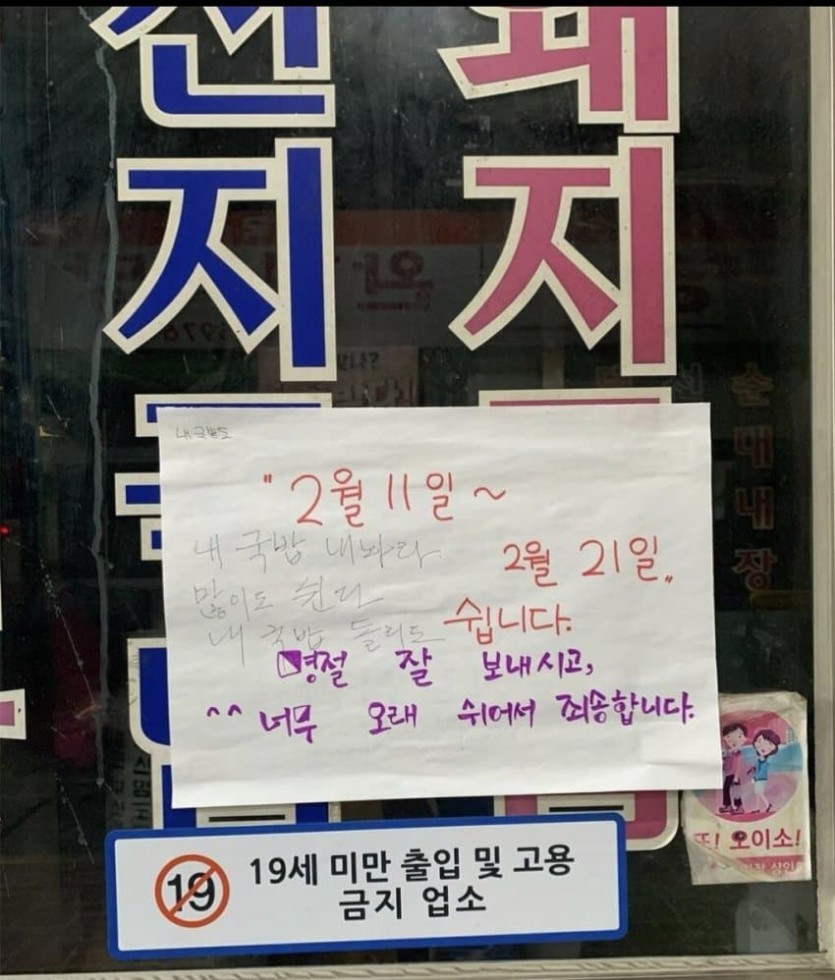 선지
돼지
순대내장
내국밥도
"2월 11일 ~
2월 21일"
쉽니다.
내 국밥 내놔라
많이도 쉰다
내 국밥 돌리도
명절 잘 보내시고,
^^ 너무 오래 쉬어서 죄송합니다.
또! 오이소!
상인
19
19세 미만 출입 및 고용
금지 업소